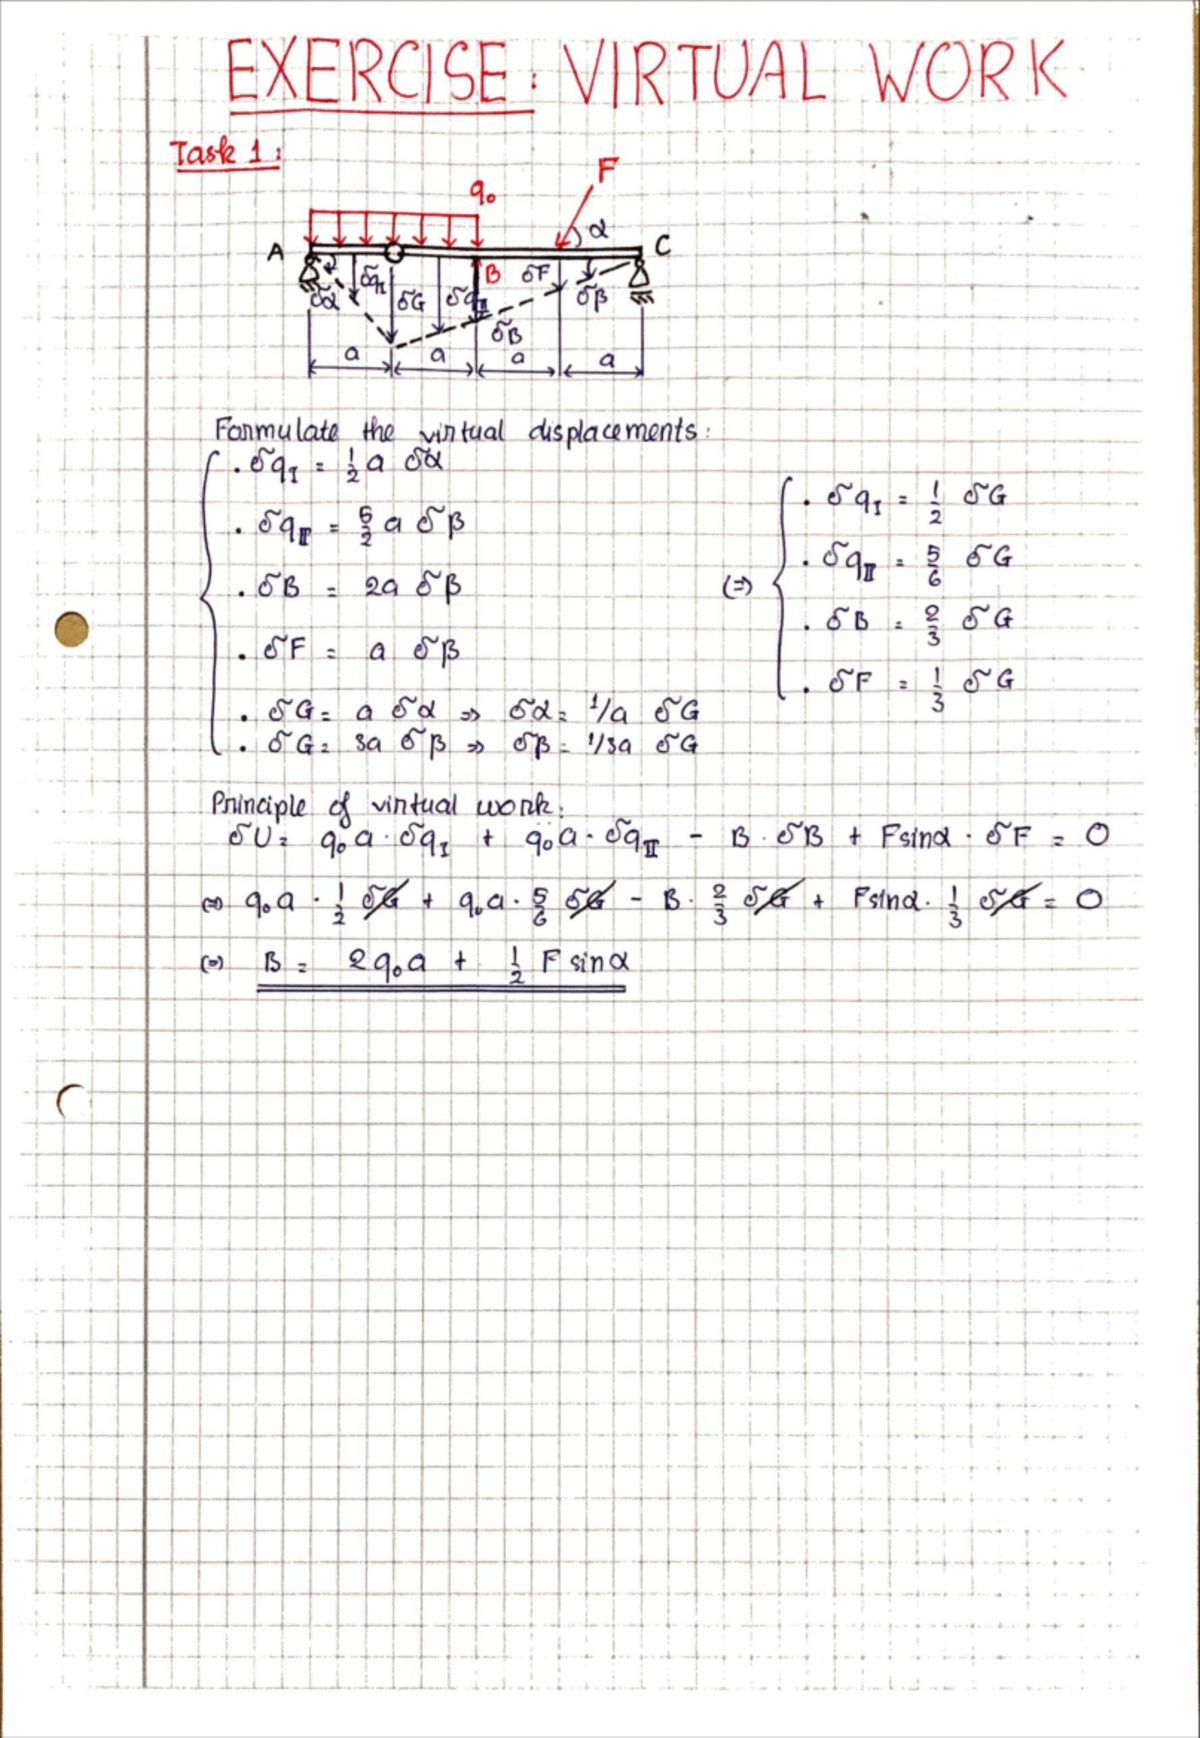 EXERCISE: VIRTUAL WORK
Task 1:
F
q₀
α
A
C
B
δq_I
δF
δα
δG
δq_II
δβ
δB
a
a
a
a
Formulate the virtual displacements:
. δq_I = 1/2 a δα
. δq_II = 5/2 a δβ
. δB = 2a δβ
. δF = a δβ
. δG = a δα ⇒ δα = 1/a δG
. δG = 3a δβ ⇒ δβ = 1/3a δG
(=)
. δq_I = 1/2 δG
. δq_II = 5/6 δG
. δB = 2/3 δG
. δF = 1/3 δG
Principle of virtual work:
δU = q₀a · δq_I + q₀a · δq_II - B · δB + F sinα · δF = 0
(=) q₀a · 1/2 δG + q₀a · 5/6 δG - B · 2/3 δG + F sinα · 1/3 δG = 0
(=) B = 2q₀a + 1/2 F sinα